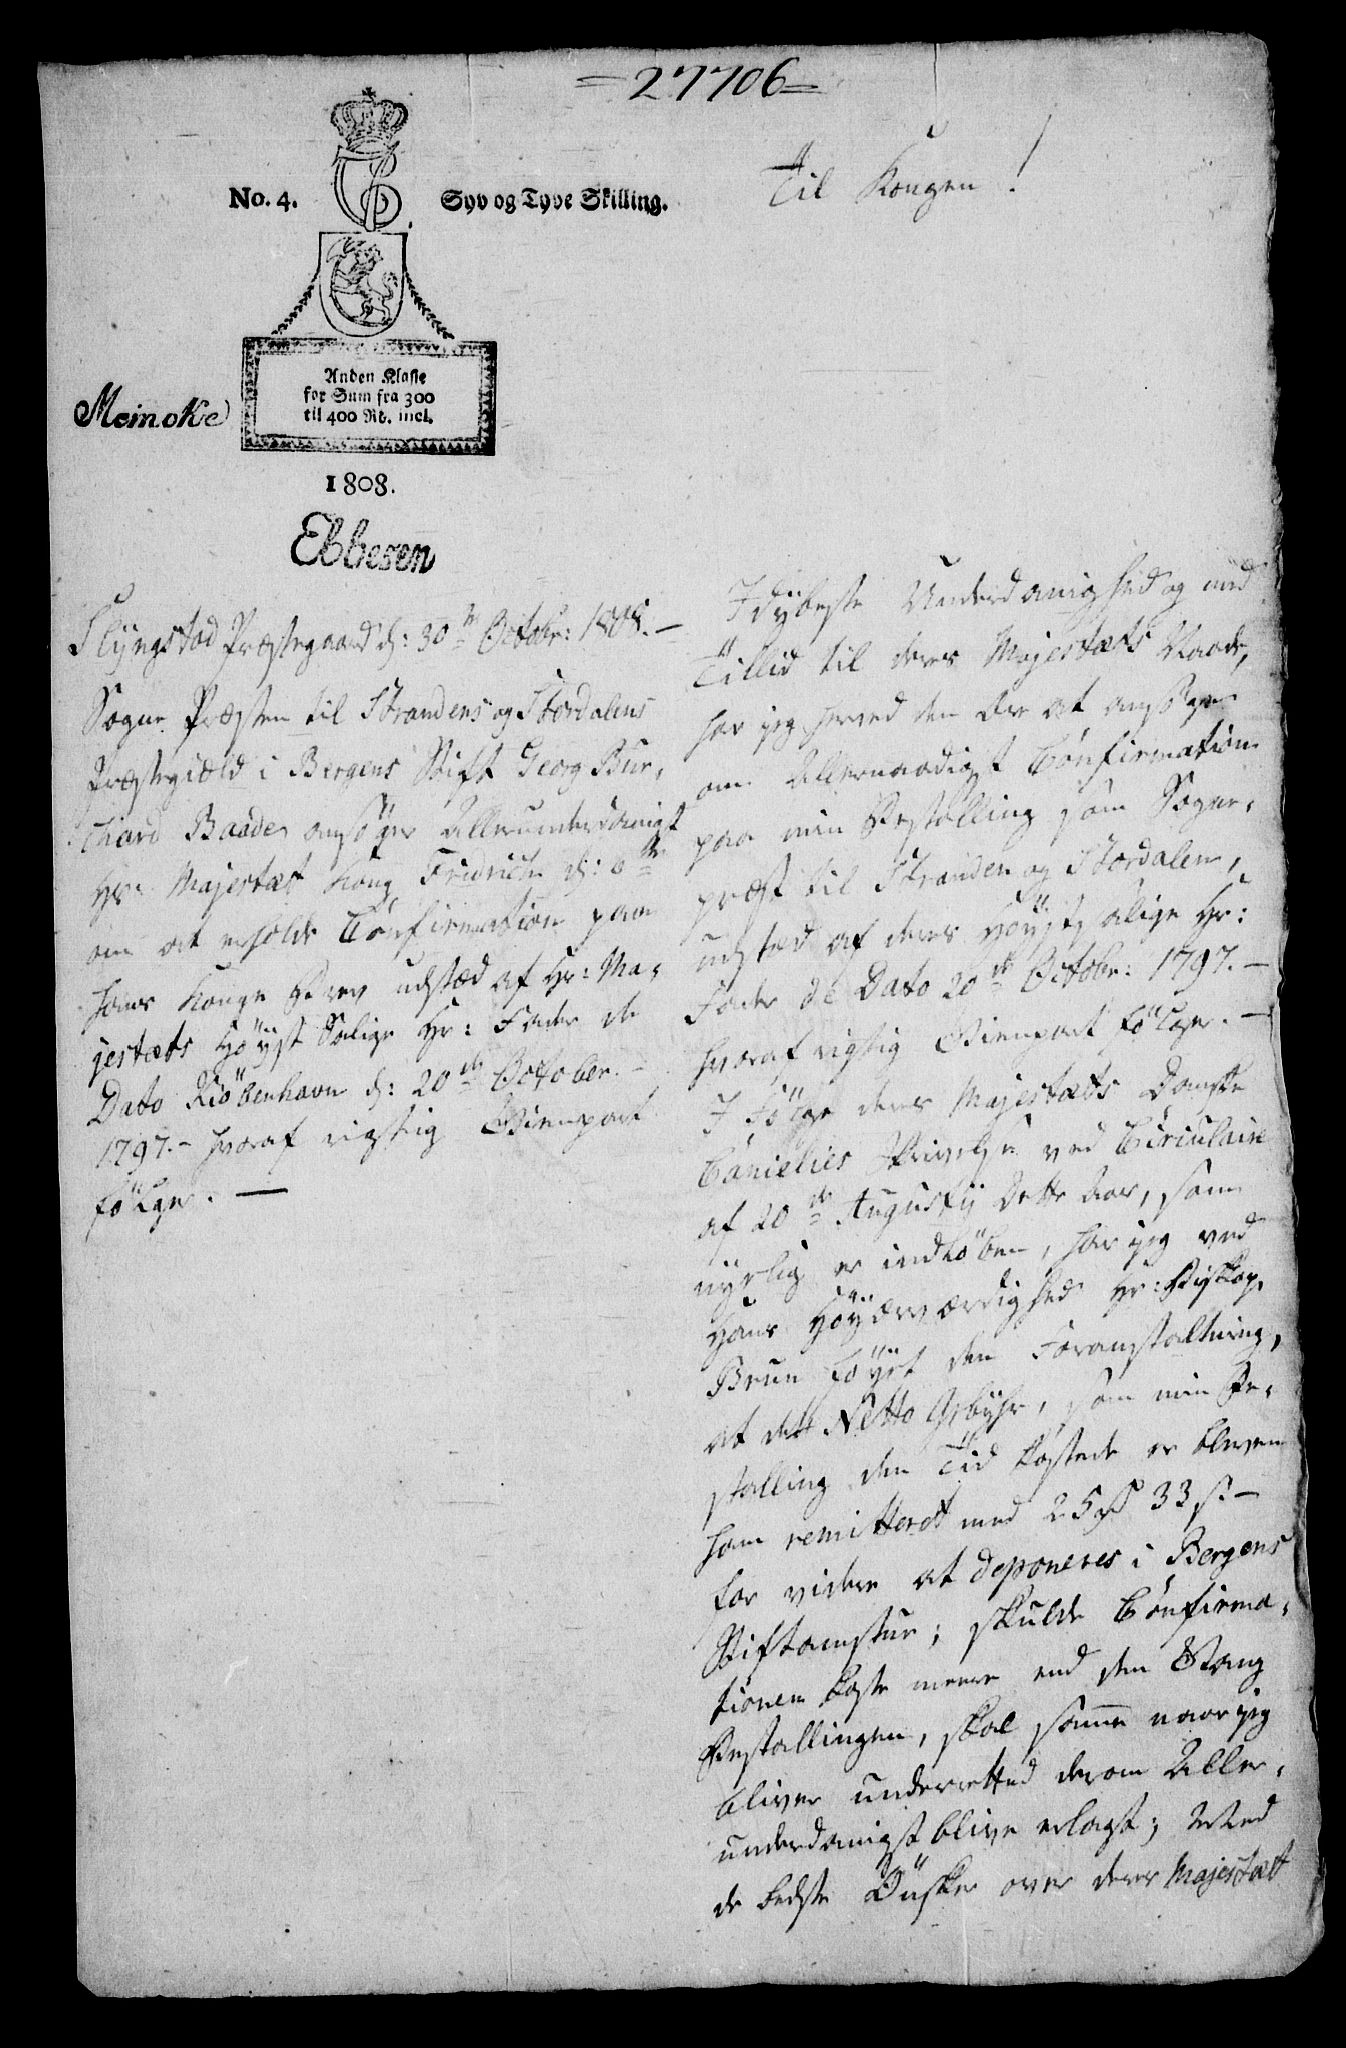 =27706=
No. 4.
Syv og Tyve Skilling.
Anden Klasse
for Sum fra 300
til 400 Rd. incl.
Meincke
1808.
Ebbesen
Slyngstad Præstegaard d: 30te Octobr: 1808. —
Sogne Præsten til Strandens og Stordalens
Præstegiæld i Bergens Stift Georg Bur-
chard Baade ansøger Allerunderdanigst
Hs: Majestæt Kong Fridrich d: 6te
om at erholde Confirmation paa
hans Konge Brev udstæd af Hs: Ma-
jestæts Høyst Salige Hr: Fader de
Dato Kiøbenhavn d: 20de October. —
1797. — hvoraf rigtig Gienpart
følger. —
Til Kongen!
I dybeste Underdanighed og med
Tillid til deres Majestæts Naade,
har jeg herved den Ære at ansøge
om Allernaadigst Confirmation
paa min Bestalling som Sogne-
præst til Stranden og Stordalen,
udstæd af deres Høyst salige Hr:
Fader de Dato 20de Octobr: 1797. —
hvoraf rigtig Gienpart følger. —
I Følge deres Majestæts Danske
Cancelies Skrivelse ved Circulaire
af 20de Augustij dette Aar, som
nyelig er indløben, har jeg ved
Hans Høyærværdighed Hr: Biskop
Brun føyet den Foranstaltning,
at det Netto Gebyhr, som min Be-
stalling den Tid kostede er bleven
ham remitteret med 25 rd 33 s. —
for videre at deponeres i Bergens
Stiftamstue; skulde Confirma-
tionen koste meere end den Gang
Bestallingen, skal samme naar jeg
bliver underretted derom Aller-
underdanigst blive erlagt; Med
de bedste Ønsker over deres Majestæt